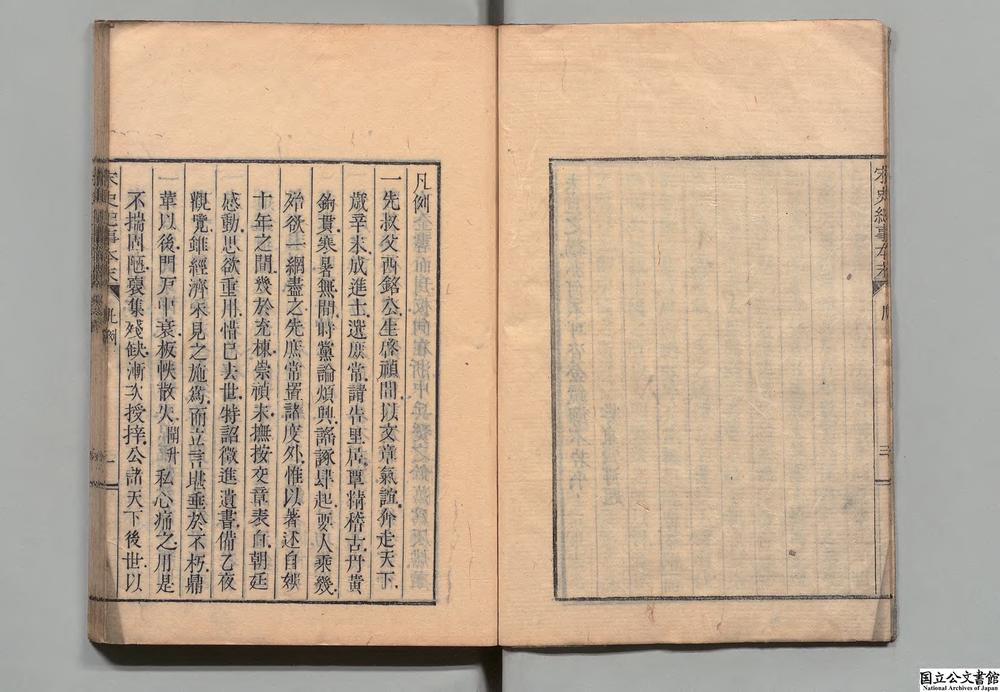 宋史紀事本末
序
三
凡例
一先叔父西銘公生啓禎間以文章氣誼奔走天下
歲辛未成進士選庶常請告里居覃精稽古丹黃
鉤貫寒暑無間時黨論煩興謠諑肆起要人乘幾
殆欲一網盡之先庶常置諸度外惟以著述自娛
十年之間幾於充棟崇禎末撫按交章表自朝廷
感動思欲重用惜已去世特詔徵進遺書備乙夜
觀覽雖經濟未見之施爲而立言堪垂於不朽鼎
一革以後門戸中衰板帙散失闓升私心痛之用是
不揣固陋裒集殘缺漸次授梓公諸天下後世以
宋史紀事本末
凡例
一
国立公文書館
National Archives of Japan